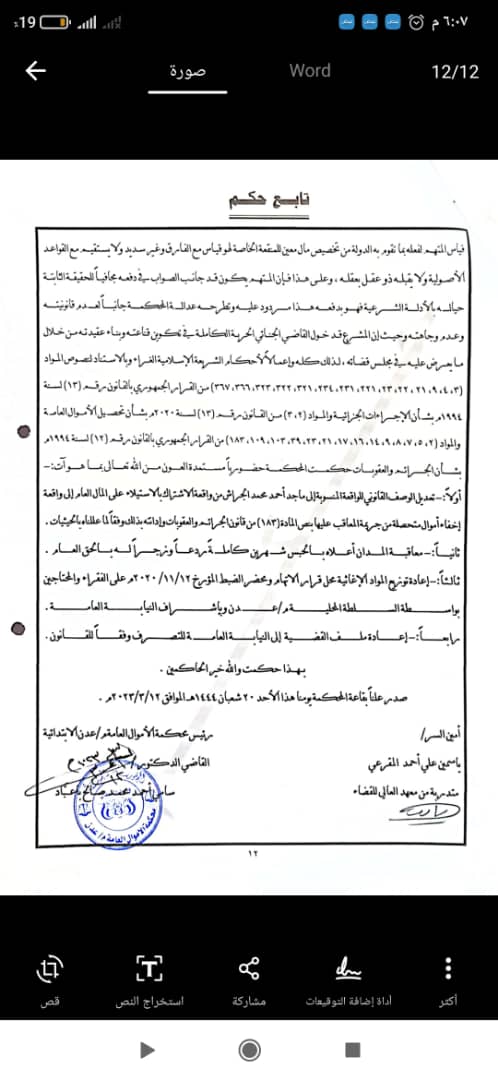 19
٦:٠٧ م
صورة
Word
12/12
تابع حكم
قياس المتهم لفعله بما تقوم به الدولة من تخصيص مال معين للمنفعة الخاصة لهو قياس مع الفارق وغير سديد ولا يستقيم مع القواعد
الأصولية ولا يقبله ذو عقل بعقله ، وعلى هذا فإن المتهم يكون قد جانب الصواب في دفعه مجافياً للحقيقة الثابتة
حياله بالأدلة الشرعية فهو بدفعه هذا مردود عليه وتطرحه عدالة المحكمة جانباً لعدم قانونيته
وعدم وجاهته وحيث إن المشرع قد خول القاضي الجنائي الحرية الكاملة في تكوين قناعته وبناء عقيدته من خلال
ما يعرض عليه في مجلس قضائه ، لذلك كله وإعمالاً لأحكام الشريعة الإسلامية الغراء وبالاستناد لنصوص المواد
(٣، ٤، ٩، ٢١، ٢٢، ٢٣، ٢٢١، ٢٣١، ٢٣٤، ٣٢١، ٣٢٢، ٣٢٣، ٣٦٦، ٣٦٧) من القرار الجمهوري بالقانون رقم (١٣) لسنة
١٩٩٤م بشأن الإجراءات الجزائية والمواد (٢، ٣) من القانون رقم (١٣) لسنة ٢٠٢٠م بشأن تحصيل الأموال العامة
والمواد (٢، ٥، ٧، ٨، ٩، ١٤، ١٦، ١٧، ٢١، ٢٣، ٣٩، ١٠٣، ١٠٩، ١٨٣) من القرار الجمهوري بالقانون رقم (١٢) لسنة ١٩٩٤م
بشأن الجرائم والعقوبات حكمت المحكمة حضورياً مستمدة العون من الله تعالى بما هو آت :-
أولاً :- تعديل الوصف القانوني للواقعة المنسوبة إلى ماجد أحمد محمد الجراش من واقعة الاشتراك بالاستيلاء على المال العام إلى واقعة
إخفاء أموال متحصلة من جريمة المعاقب عليها بنص المادة (١٨٣) من قانون الجرائم والعقوبات وإدانته بذلك وفقاً لما عللناه بالحيثيات .
ثانياً :- معاقبة المدان أعلاه بالحبس شهرين كاملة ردعاً وزجراً له بالحق العام .
ثالثاً :- إعادة توزيع المواد الإغاثية محل قرار الاتهام ومحضر الضبط المؤرخ ٢٠٢٠/١١/١٢م على الفقراء والمحتاجين
بواسطة السلطة المحلية م/عدن وبإشراف النيابة العامة .
رابعاً :- إعادة ملف القضية إلى النيابة العامة للتصرف وفقاً للقانون .
بهذا حكمت والله خير الحاكمين .
صدر علناً بقاعة المحكمة يومنا هذا الأحد ٢٠ شعبان ١٤٤٤هـ الموافق ٢٠٢٣/٣/١٢م .
أمين السر/
رئيس محكمة الأموال العامة م/عدن الابتدائية
ياسمين علي أحمد المفرعي
القاضي الدكتور/
متدربة من معهد العالي للقضاء
سامي أحمد محمد صالح باعباد
محكمة الأموال العامة م/ عدن
١٢
قص
استخراج النص
مشاركة
أداة إضافة التوقيعات
أكثر